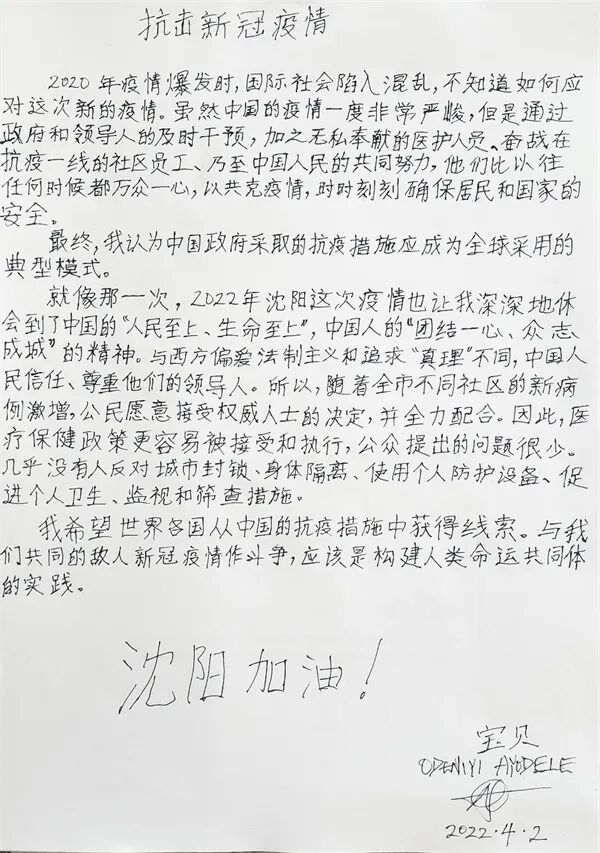 抗击新冠疫情
2020年疫情爆发时,国际社会陷入混乱,不知道如何应
对这次新的疫情。虽然中国的疫情一度非常严峻,但是通过
政府和领导人的及时干预,加之无私奉献的医护人员、奋战在
抗疫一线的社区员工、乃至中国人民的共同努力,他们比以往
任何时候都万众一心,以共克疫情,时时刻刻确保居民和国家的
安全。
最终,我认为中国政府采取的抗疫措施应成为全球采用的
典型模式。
就像那一次,2022年沈阳这次疫情也让我深深地体
会到了中国的“人民至上、生命至上”,中国人的“团结一心、众志
成城”的精神。与西方偏爱法制主义和追求“真理”不同,中国人
民信任、尊重他们的领导人。所以,随着全市不同社区的新病
例激增,公民愿意接受权威人士的决定,并全力配合。因此,医
疗保健政策更容易被接受和执行,公众提出的问题很少。
几乎没有人反对城市封锁、身体隔离、使用个人防护设备、促
进个人卫生、监视和筛查措施。
我希望世界各国从中国的抗疫措施中获得线索。与我
们共同的敌人新冠疫情作斗争,应该是构建人类命运共同体
的实践。
沈阳加油!
宝贝
ODENIYI AYODELE
2022.4.2